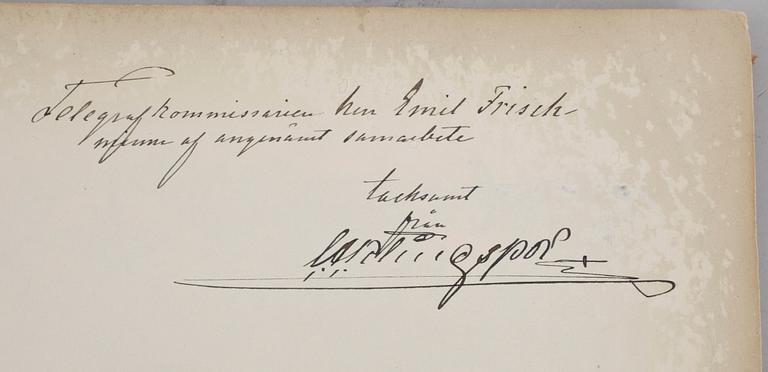 Telegrafkommissarien herr Emil Frisch
minne af angenämt samarbete
tacksamt
från
CAKlingspor